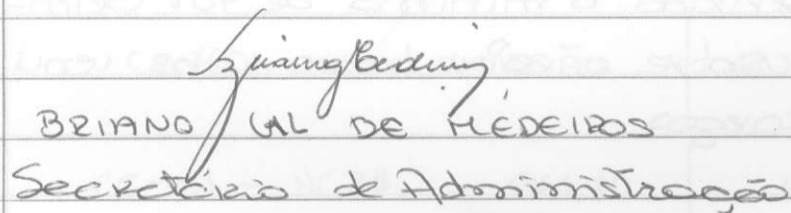 BRIANO GAL DE MEDEIROS
Secretário de Administração